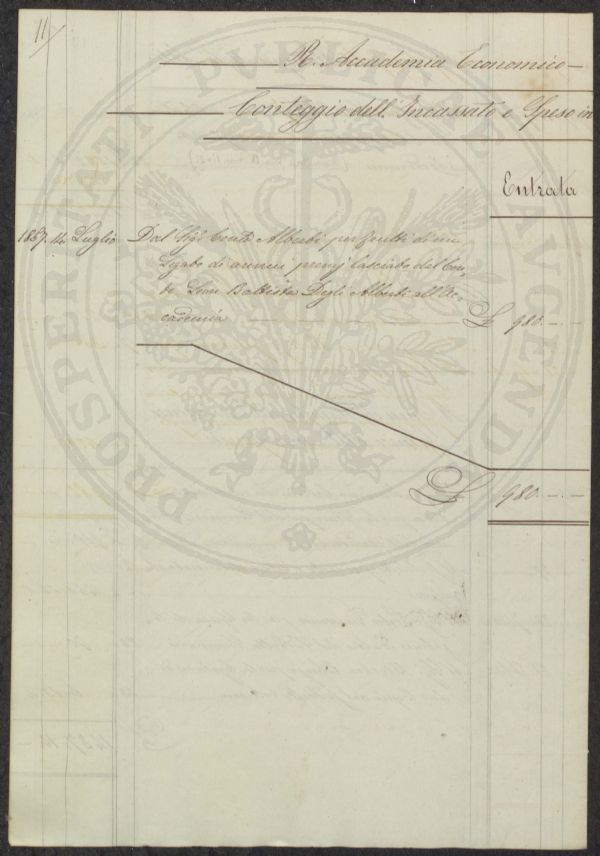 11
R. Accademia Economico-
Conteggio dell' Incassato e Speso in
Entrata
1857. 14. Luglio Dal Sig. Conte Alberti per frutti di un
Legato di annui premj lasciato dal Con-
te Leon Battista Degli Alberti all' Ac-
cademia £ 980. - . -
£ 980. - . -
PROSPERITATI PVBLICAE AVGENDAE